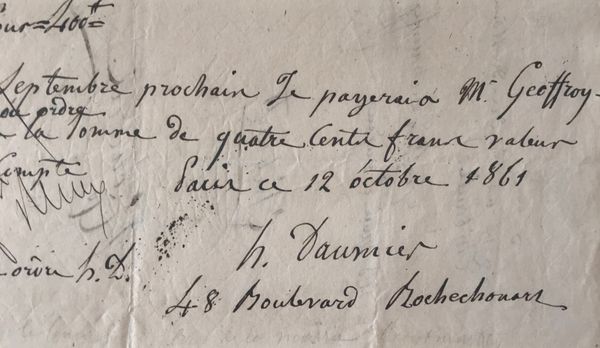 Pour = 400ᶠᶠ =
Septembre prochain Je payerai à Mr Geoffroy-
ou ordre
la somme de quatre Cents francs valeur
Compte Paris ce 12 octobre 1861
h. Daumier
ordre h. D.
48 Boulevard Rochechouart